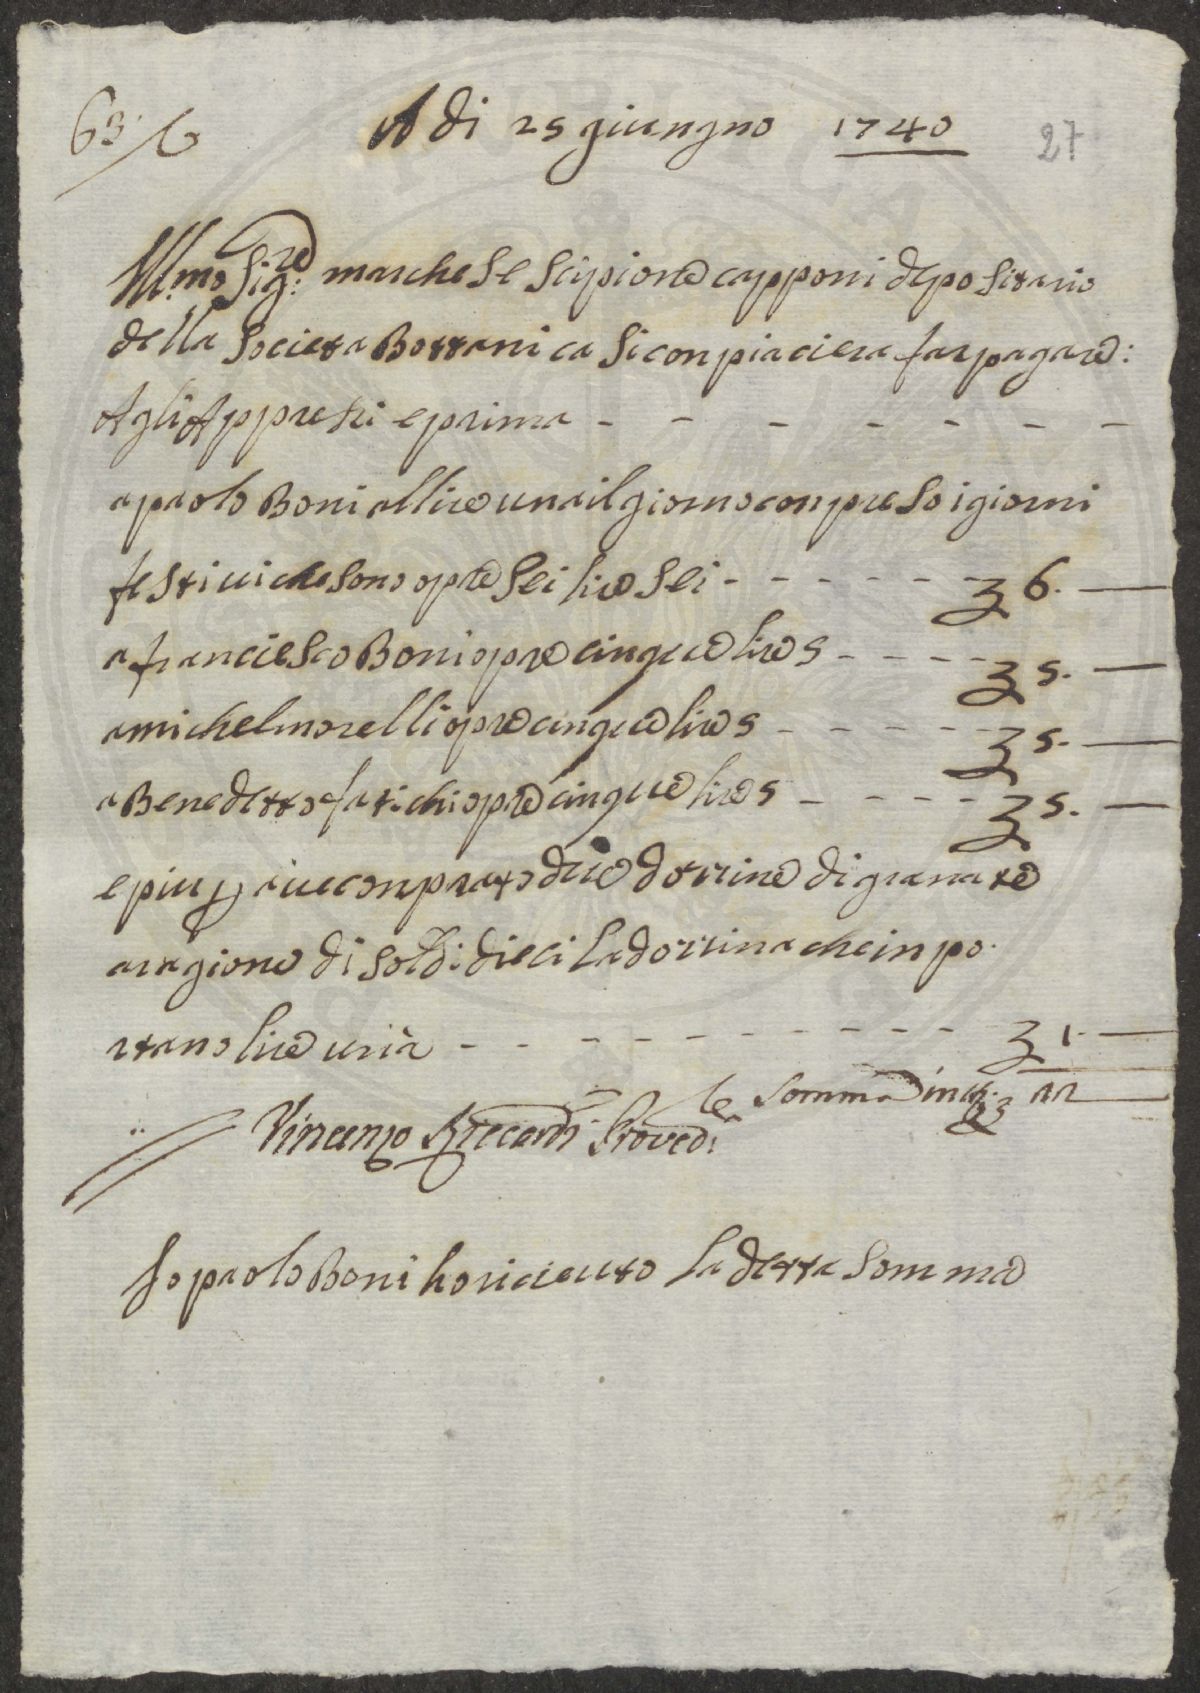 63 A di 25 giungno 1740 27
Ill.mo Sig:re marchese Scipione capponi depositario
della Societa Bottanica Si conpiaciera far pagare:
A gli Appresti e prima - - - - - - -
a paolo Boni allire una il giorno conpreso i giorni
festiui che sono opre Sei lire Sei - - - - - - 6. —
a franciesco Boni opre cinque lire 5 - - - - 5. —
a michel morelli opre cinque lire 5 - - - - - 5. —
a Benedetto fatichi opre cinque lire 5 - - - - 5. —
e piu p auer conprato due dozzine di granate
a ragione di Soldi dieci la dozzina che inpo
rtano lire una - - - - - - - - - - 1. —
Somma in tt: 22
Vincenzo Riccardi Proved:
Io paolo Boni ho riceuuto la detta Somma